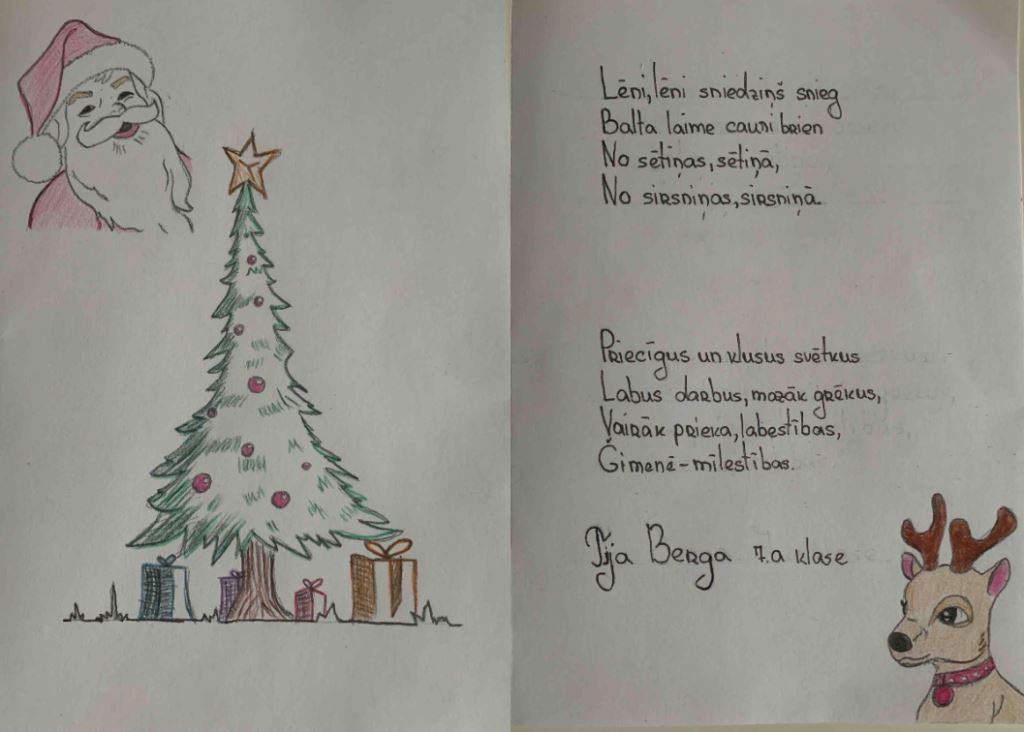 Lēni, lēni sniedziņš snieg
Balta laime cauri brien
No sētiņas, sētiņā,
No sirsniņas, sirsniņā
Priecīgus un klusus svētkus
Labus darbus, mazāk grēkus,
Vairāk prieka, labestības,
Ģimenē - mīlestības.
Berga 7.a klase